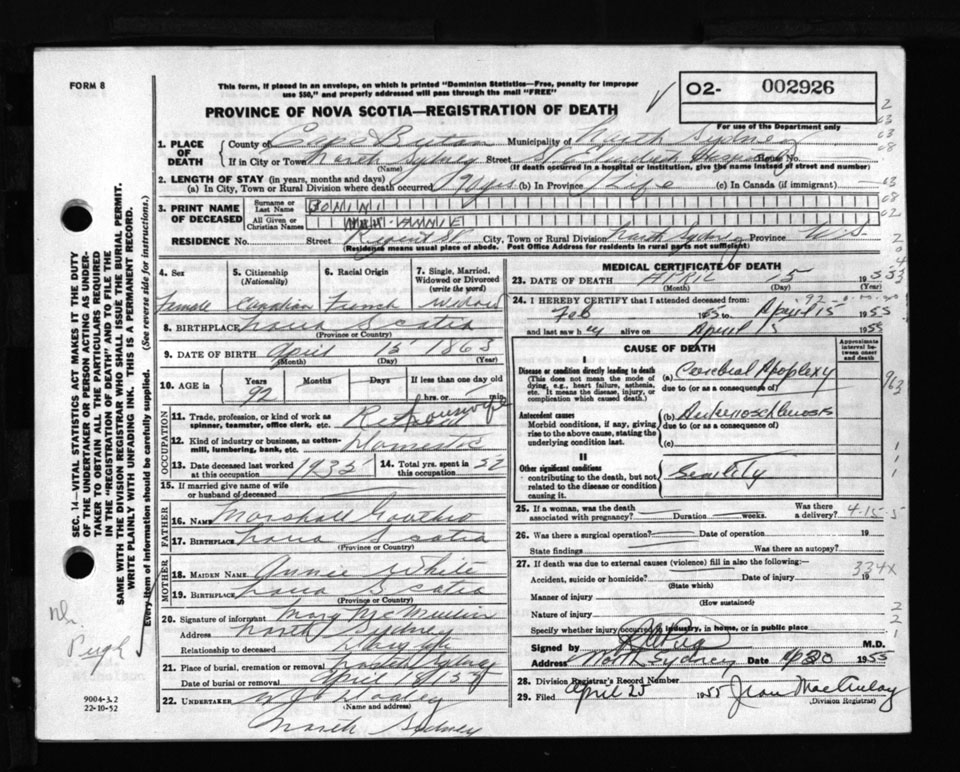 FORM 8
This form, if placed in an envelope, on which is printed "Dominion Statistics—Free, penalty for improper
use $50," and properly addressed will pass through the mail "FREE"
PROVINCE OF NOVA SCOTIA—REGISTRATION OF DEATH
02- 002926
For use of the Department only
1. PLACE OF DEATH
County of Cape Breton Municipality of North Sydney
If in City or Town North Sydney Street St. Elizabeth Hospital House No.
(Name) (If death occurred in a hospital or institution, give the name instead of street and number)
2. LENGTH OF STAY (in years, months and days)
(a) In City, Town or Rural Division where death occurred (b) In Province Life (c) In Canada (if immigrant)
3. PRINT NAME OF DECEASED
Surname or Last Name BOMINI
All Given or Christian Names ANNIE
RESIDENCE No. Street Regent St. City, Town or Rural Division North Sydney Province N.S.
(Residence means usual place of abode. Post Office Address for residents in rural parts not sufficient)
4. Sex Female
5. Citizenship (Nationality) Canadian
6. Racial Origin French
7. Single, Married, Widowed or Divorced (write the word) Widowed
8. BIRTHPLACE Nova Scotia
(Province or Country)
9. DATE OF BIRTH April 15 1863
(Month) (Day) (Year)
10. AGE in Years Months Days If less than one day old
92 hrs. or min.
OCCUPATION
11. Trade, profession, or kind of work as spinner, teamster, office clerk, etc. Housewife
12. Kind of industry or business, as cotton-mill, lumbering, bank, etc. Domestic
13. Date deceased last worked at this occupation 1935
14. Total yrs. spent in this occupation 52
15. If married give name of wife or husband of deceased
FATHER
16. NAME Marshall
17. BIRTHPLACE Nova Scotia
(Province or Country)
MOTHER
18. MAIDEN NAME Annie White
19. BIRTHPLACE Nova Scotia
(Province or Country)
20. Signature of informant Mary McMullin
Address North Sydney
Relationship to deceased
21. Place of burial, cremation or removal North Sydney
Date of burial or removal April 18 1955
22. UNDERTAKER
(Name and address)
North Sydney
MEDICAL CERTIFICATE OF DEATH
23. DATE OF DEATH April 15 1955
(Month) (Day)
24. I HEREBY CERTIFY that I attended deceased from:
Feb 1955 to April 15 1955
and last saw her alive on April 15 1955
CAUSE OF DEATH
Approximate interval between onset and death
I
Disease or condition directly leading to death
(This does not mean the mode of dying, e.g., heart failure, asthenia, etc. It means the disease, injury, or complication which caused death.)
(a) Cerebral Apoplexy
due to (or as a consequence of)
Antecedent causes
Morbid conditions, if any, giving rise to the above cause, stating the underlying condition last.
(b) Arteriosclerosis
due to (or as a consequence of)
(c)
II
Other significant conditions contributing to the death, but not related to the disease or condition causing it.
Senility
25. If a woman, was the death associated with pregnancy? Duration weeks. Was there a delivery? 4-15-5
26. Was there a surgical operation? Date of operation 19
State findings Was there an autopsy?
27. If death was due to external causes (violence) fill in also the following:— 334X
Accident, suicide or homicide? Date of injury 19
(State which)
Manner of injury
(How sustained)
Nature of injury
Specify whether injury occurred in industry, in home, or in public place
Signed by M.D.
Address North Sydney Date 1955
28. Division Registrar's Record Number
29. Filed April 25 1955 Jean MacAulay
(Division Registrar)
SEC. 14—VITAL STATISTICS ACT MAKES IT THE DUTY
OF THE UNDERTAKER OR PERSON ACTING AS UNDERTAKER
TO OBTAIN ALL THE PARTICULARS REQUIRED
IN THE "REGISTRATION OF DEATH" AND TO FILE THE
SAME WITH THE DIVISION REGISTRAR WHO SHALL ISSUE THE BURIAL PERMIT.
WRITE PLAINLY WITH UNFADING INK. THIS IS A PERMANENT RECORD.
Every item of information should be carefully supplied. (See reverse side for instructions.)
Dr. Pugh
9004-3.2
22-10-52